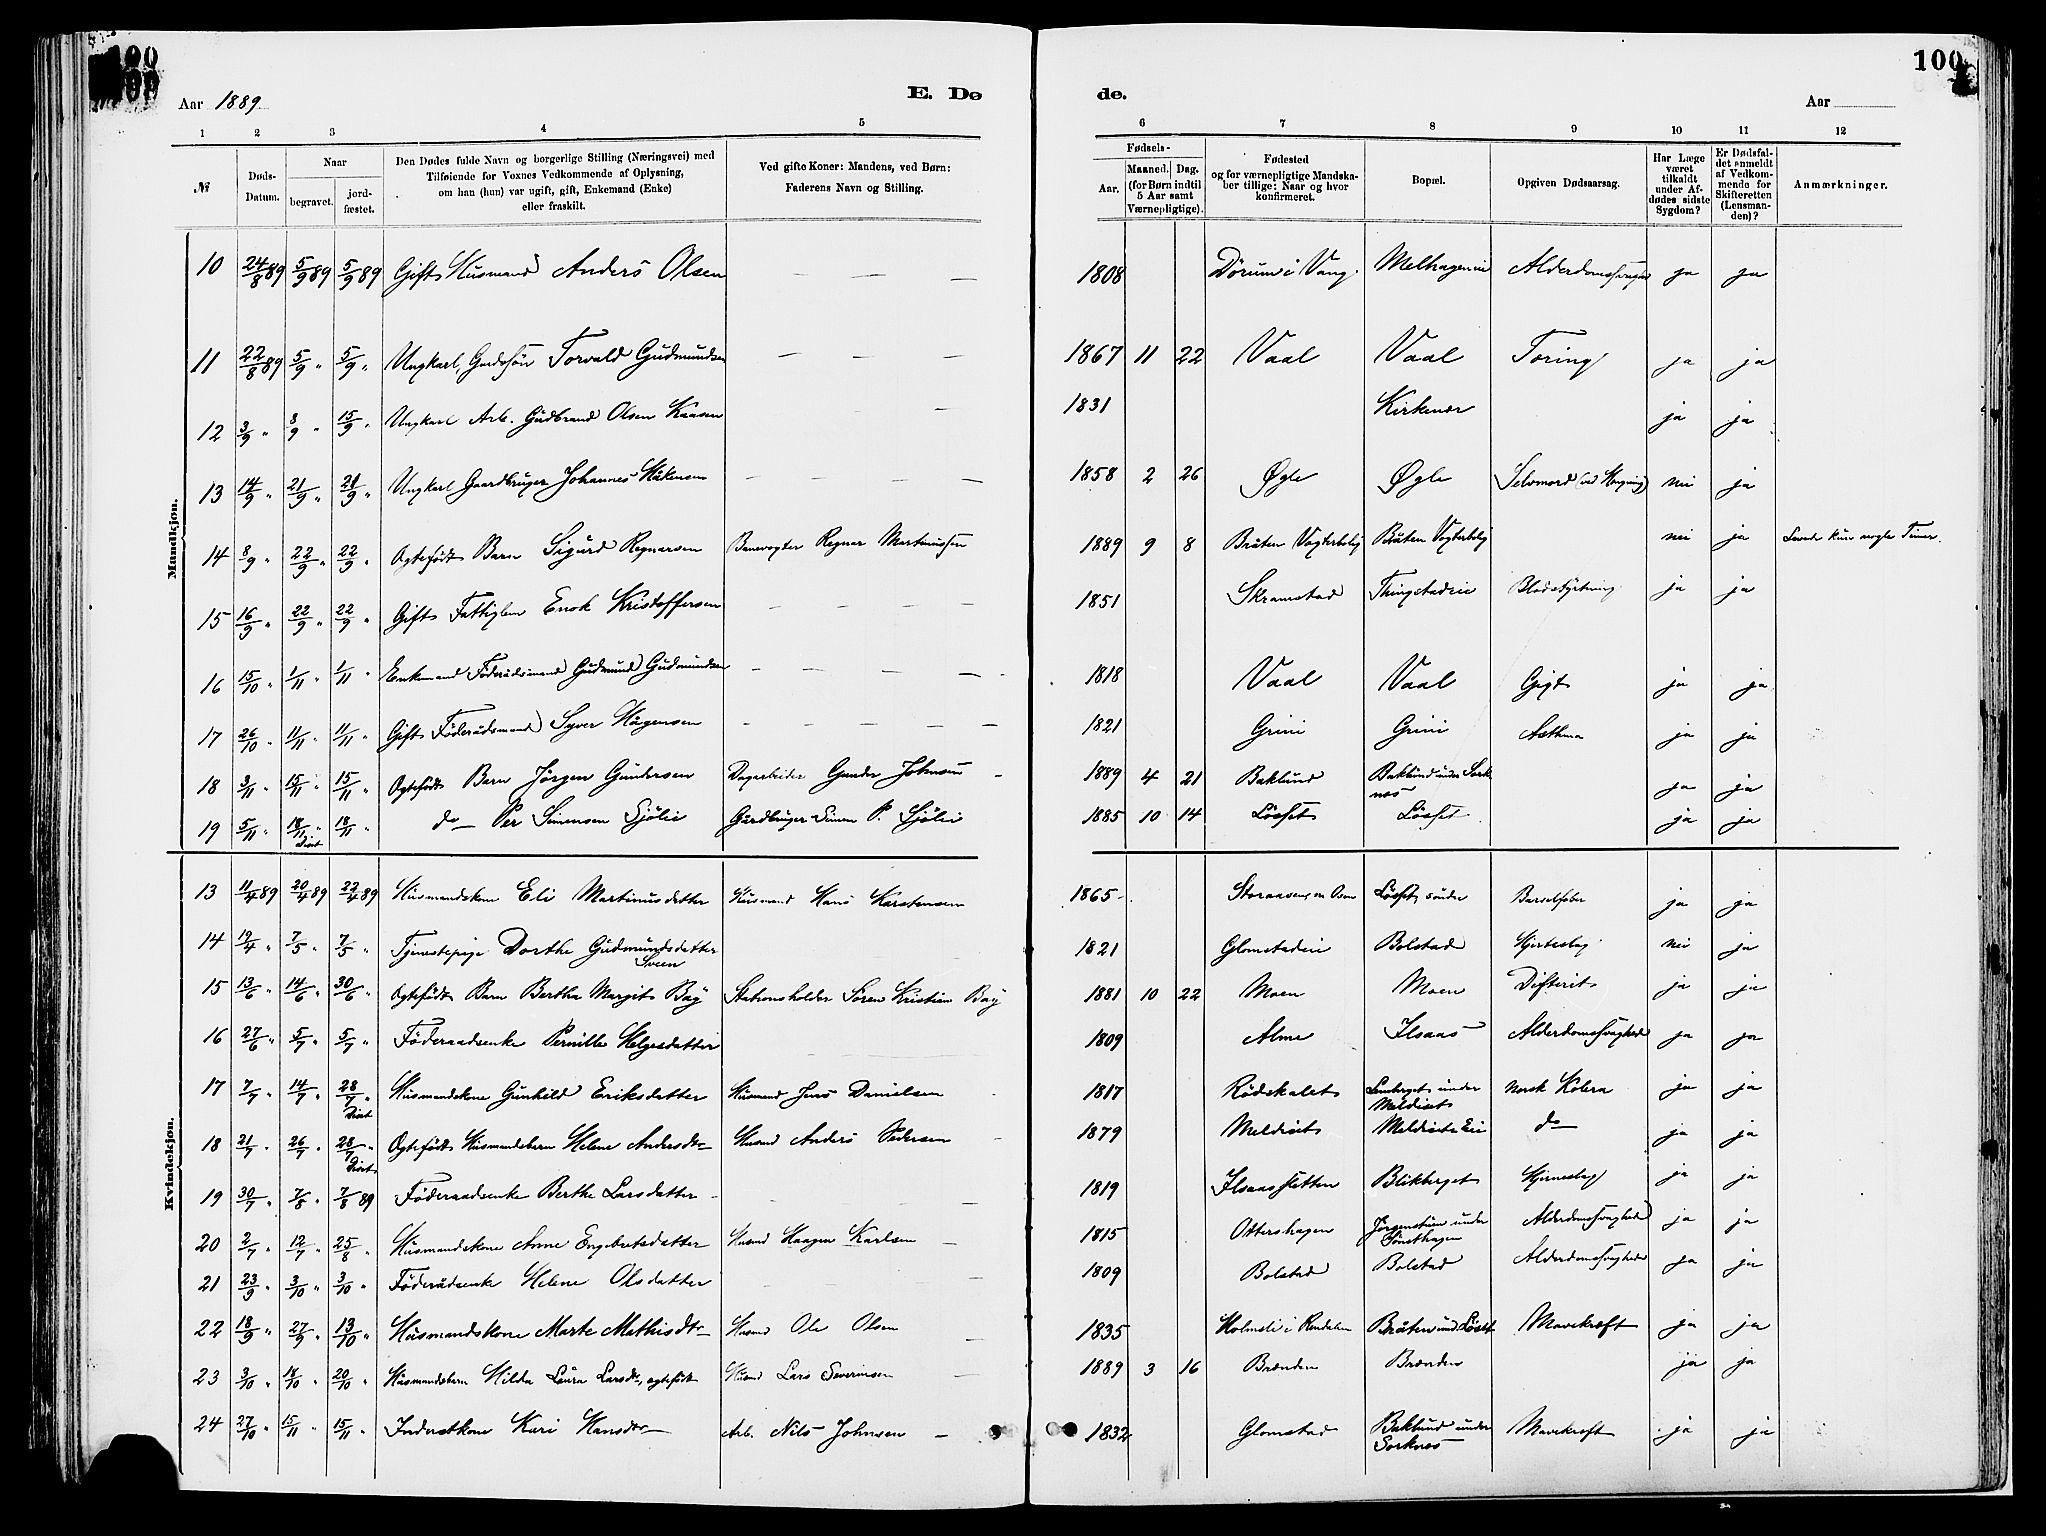 100
100
Aar 1889
E. Dø de.
Aar
1 2 3 4 5 6 7 8 9 10 11 12
№
Døds-Datum.
Naar
begravet.
jord-fæstet.
Den Dødes fulde Navn og borgerlige Stilling (Næringsvei) med
Tilføiende for Voxnes Vedkommende af Oplysning,
om han (hun) var ugift, gift, Enkemand (Enke)
eller fraskilt.
Ved gifte Koner: Mandens, ved Børn:
Faderens Navn og Stilling.
Fødsels-
Aar.
Maaned. Dag.
(for Børn indtil
5 Aar samt
Værnepligtige).
Fødested
og for værnepligtige Mandska-
ber tillige: Naar og hvor
konfirmeret.
Bopæl.
Opgiven Dødsaarsag.
Har Læge
været
tilkaldt
under Af-
dødes sidste
Sygdom?
Er Dødsfal-
det anmeldt
af Vedkom-
mende for
Skifteretten
(Lensman-
den)?
Anmærkninger.
Mandkjøn.
10 24/8 89 5/9 89 5/9 89 Gift Husmand Anders Olsen — — — 1808 Dørum i Vang. Melhageneie Alderdomssvaghed ja ja
11 22/8 89 5/9 " 5/9 " Ungkarl, Gardssøn Torvald Gudmundsen — — — 1867 11 22 Vaal Vaal Tæring ja ja
12 3/9 " 8/9 " 15/9 " Ungkarl Arb. Gudbrand Olsen Kaasen — — 1831 Kirkenær ja ja
13 14/9 " 21/9 " 21/9 " Ungkarl Gaardbruger Johannes Håkensen — — — 1858 2 26 Øgle Øgle Selvmord (ved Hængning) nei ja
14 8/9 " 22/9 " 22/9 " Ægtefødt Barn Sigurd Regnarsen Banevogter Regnar Martinussen 1889 9 8 Bråten Vogterbolig Bråten Vogterbolig nei ja Levede kun nogle Timer.
15 16/9 " 22/9 " 22/9 " Gift Fattiglem Enok Kristoffersen — — — 1851 Skramstad Thingstadeie Blodstyrtning ja ja
16 15/10 " 1/11 " 1/11 " Enkemand Føderådsmand Gudmund Gudmundsen — — — 1818 Vaal Vaal Gigt ja ja
17 26/10 " 11/11 " 11/11 " Gift Føderådsmand Syver Hågensen — — — 1821 Grini Grini Asthma ja ja
18 3/11 " 15/11 " 15/11 " Ægtefødt Barn Jørgen Gundersen Dagarbeider Gunder Johnsen — 1889 4 21 Baklund Baklund under Sork-
næs ja ja
19 5/11 " 18/11 " 18/11 " do— Per Simensen Sjølie Gardbruger Simen P. Sjølie 1885 10 14 Løsset Løsset ja ja
Kvindekjøn.
13 11/4 89 20/4 89 22/4 89 Husmandskone Eli Martinusdatter Husmand Hans Karstensen 1865 Løsset, søndre Barselfeber ja ja
14 19/4 " 7/5 " 7/5 " Tjenestepige Dorthe Gudmundsdatter
Sveen 1821 Glomstadeie Bolstad Hjerteslag nei ja
15 13/6 " 14/6 " 30/6 " Ægtefødt Barn Bertha Margit Bay Stationsholder Søren Kristian Bay 1881 10 22 Moen Moen Difterit ja ja
16 27/6 " 5/7 " 5/7 " Føderaadsenke Pernille Helgesdatter 1809 Alme Ilsaas Alderdomssvaghed ja ja
17 7/7 " 14/7 " 28/7 " Husmandskone Gunhild Eriksdatter Husmand Jens Danielsen 1817 Rødskalet Lemberget under
Meldiset norsk Kolera ja ja
18 21/7 " 26/7 " 28/7 " Ægtefødt Husmandsbarn Helene Andersdtr Husmd Anders Pedersen 1879 Meldiset Meldiset Eie do— ja ja
19 30/7 " 7/8 " 7/8 89 Føderaadsenke Berthe Larsdatter — 1819 Ilsaassletten Blikberget Hjerneslag ja ja
20 2/7 " 12/7 " 25/8 " Husmandskone Anne Engebretsdatter Husmd Haagen Karlsen — 1815 Ottershagen Jørgenstuen under
Tønsthagen Alderdomssvaghed ja ja
21 23/9 " 3/10 " 3/10 " Føderådsenke Helene Olsdatter — 1809 Bolstad Bolstad Alderdomssvaghed ja ja
22 18/9 " 27/9 " 13/10 " Husmandskone Marte Mathisdtr— Husmd Ole Olsen — 1835 Holmeli i Rendalen Bråten und. Løsset Mavekræft ja ja
23 3/10 " 18/10 " 20/10 " Husmandsbarn Hilda Laura Larsdtr, ægtefødt Husmd Lars Severinsen — 1889 3 16 Brænden Brænden ja ja
24 27/10 " 15/11 " 15/11 " Inderstkone Kari Hansdtr— Arb. Nils Johnsen — 1832 Glomstad Baklund under
Sorknæs Mavekræft ja ja